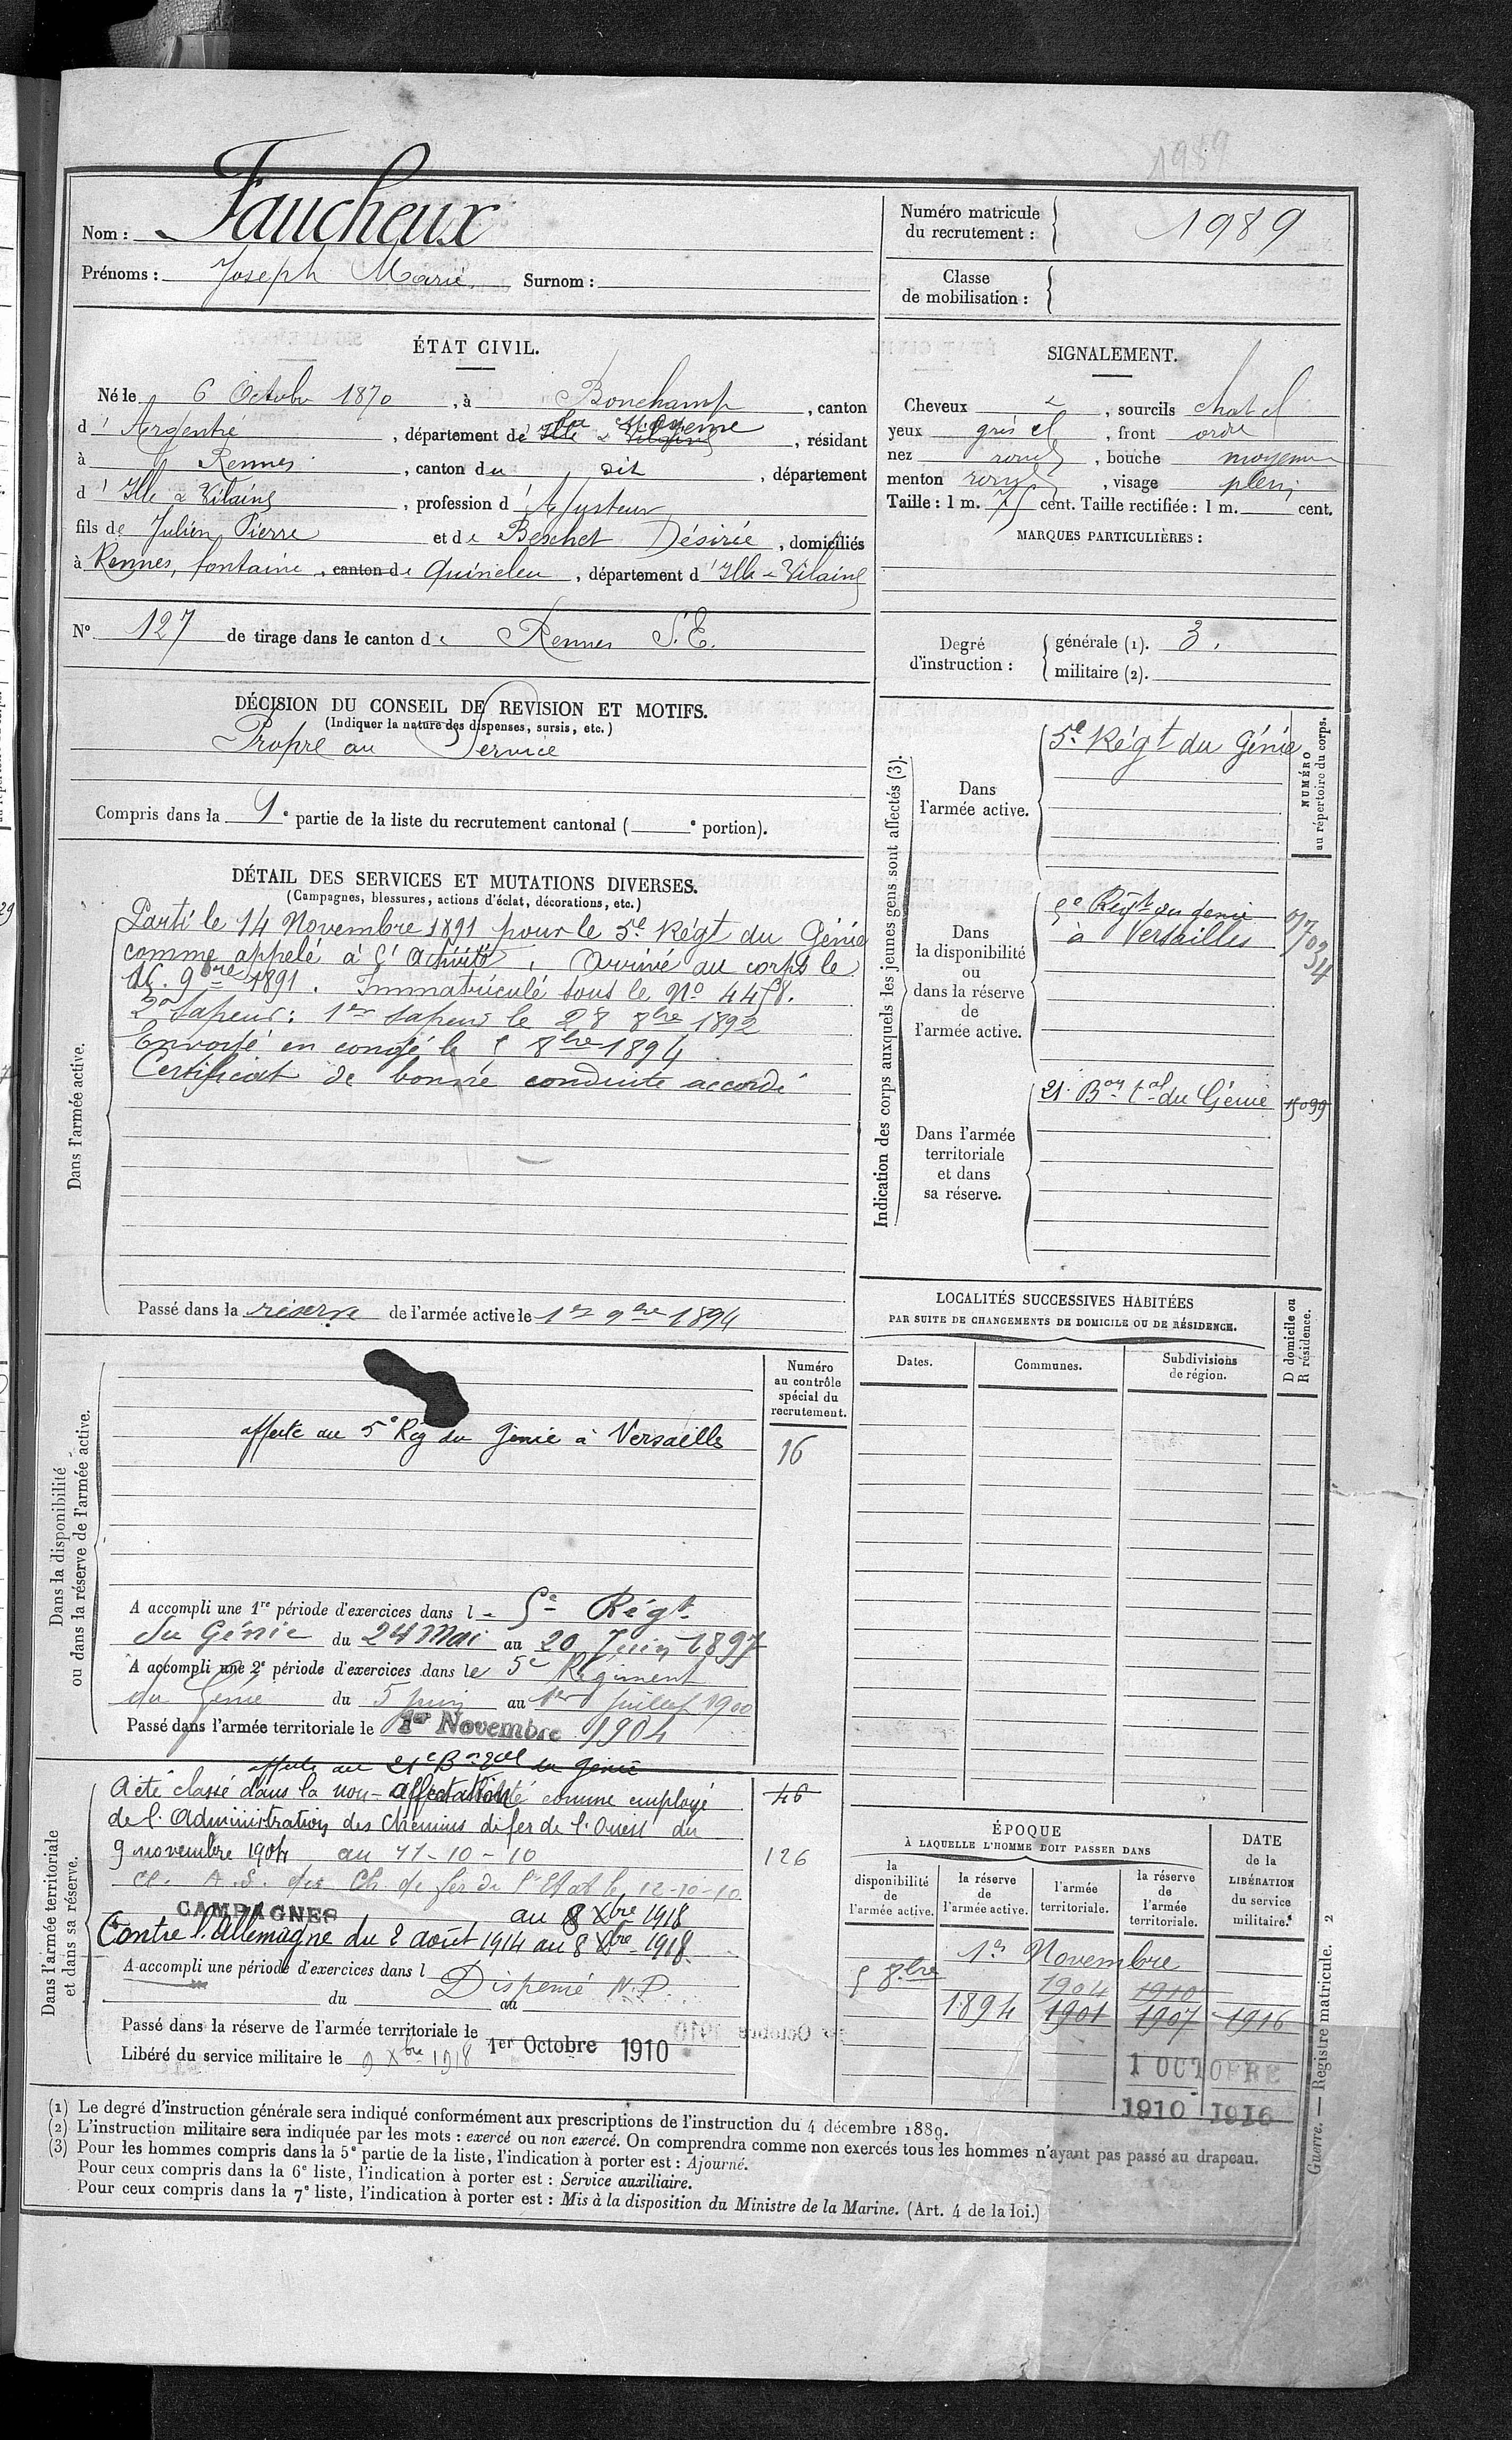 1989
Nom : Faucheux
Prénoms : Joseph Marie Surnom :
Numéro matricule du recrutement : 1989
Classe de mobilisation :
ÉTAT CIVIL.
Né le 6 Octobre 1870, à Bonchamp, canton
d' Argentré, département de Ille & Vilaine la Mayenne, résidant
à Rennes, canton du dit, département
d' Ille & Vilaine, profession d' Ajusteur
fils de Julien Pierre et de Beschet Désirée, domiciliés
à Rennes, fontaine, canton de Quineleu, département d' Ille & Vilaine
SIGNALEMENT.
Cheveux , sourcils chat cl
yeux gris cl, front ordre
nez rond, bouche moyenne
menton rond, visage plein
Taille : 1 m. 75 cent. Taille rectifiée : 1 m. cent.
MARQUES PARTICULIÈRES :
N° 127 de tirage dans le canton de Rennes S. E.
Degré d'instruction :
générale (1). 3.
militaire (2).
DÉCISION DU CONSEIL DE REVISION ET MOTIFS.
(Indiquer la nature des dispenses, sursis, etc.)
Propre au Service
Compris dans la 1e partie de la liste du recrutement cantonal ( e portion).
DÉTAIL DES SERVICES ET MUTATIONS DIVERSES.
(Campagnes, blessures, actions d'éclat, décorations, etc.)
Dans l'armée active.
Parti le 14 Novembre 1891 pour le 5e Régt du Génie
comme appelé à l'activité. Arrivé au corps le
16. 9bre 1891. Immatriculé sous le No 4458.
2e Sapeur : 1er Sapeur le 28 8bre 1892
Envoyé en congé le 5 8bre 1894
Certificat de bonne conduite accordé
Passé dans la réserve de l'armée active le 1er 9bre 1894
Indication des corps auxquels les jeunes gens sont affectés (3).
NUMÉRO au répertoire du corps.
Dans l'armée active.
5e Régt du Génie
Dans la disponibilité ou dans la réserve de l'armée active.
5e Régt du génie
à Versailles
Dans l'armée territoriale et dans sa réserve.
21e Bon tal du Génie 15099
LOCALITÉS SUCCESSIVES HABITÉES
PAR SUITE DE CHANGEMENTS DE DOMICILE OU DE RÉSIDENCE.
Dates. Communes. Subdivisions de région. D domicile ou R résidence.
Dans la disponibilité ou dans la réserve de l'armée active.
Numéro au contrôle spécial du recrutement.
affecté au 5e Rég du Génie à Versailles 16
A accompli une 1re période d'exercices dans l e 5e Régt
du Génie du 24 Mai au 20 Juin 1897
A accompli une 2e période d'exercices dans le 5e Régiment
du Génie du 5 juin au 1er juillet 1900
Passé dans l'armée territoriale le 1er Novembre 1904
Dans l'armée territoriale et dans sa réserve.
affecté au 21e Bon tal du génie
A été classé dans la non-affectation comme employé 46
de l'Administration des Chemins de fer de l'Ouest du
9 novembre 1904 au 11-10-10 126
cl. A. S. des Ch. de fer de l'Etat le 12-10-10
au 8 Xbre 1918
CAMPAGNES
Contre l'Allemagne du 2 août 1914 au 8 Xbre 1918
A accompli une période d'exercices dans l
Dispensé N.D.
du au
Passé dans la réserve de l'armée territoriale le 1er Octobre 1910
Libéré du service militaire le 9 Xbre 1918
ÉPOQUE
À LAQUELLE L'HOMME DOIT PASSER DANS
la disponibilité de l'armée active.
la réserve de l'armée active.
l'armée territoriale.
la réserve de l'armée territoriale.
DATE de la LIBÉRATION du service militaire.
1er Novembre
5 8bre 1904 1910
1894 1901 1907 1916
1 OCTOBRE
1910 1916
(1) Le degré d'instruction générale sera indiqué conformément aux prescriptions de l'instruction du 4 décembre 1889.
(2) L'instruction militaire sera indiquée par les mots : exercé ou non exercé. On comprendra comme non exercés tous les hommes n'ayant pas passé au drapeau.
(3) Pour les hommes compris dans la 5e partie de la liste, l'indication à porter est : Ajourné.
Pour ceux compris dans la 6e liste, l'indication à porter est : Service auxiliaire.
Pour ceux compris dans la 7e liste, l'indication à porter est : Mis à la disposition du Ministre de la Marine. (Art. 4 de la loi.)
Guerre. — Registre matricule. 2